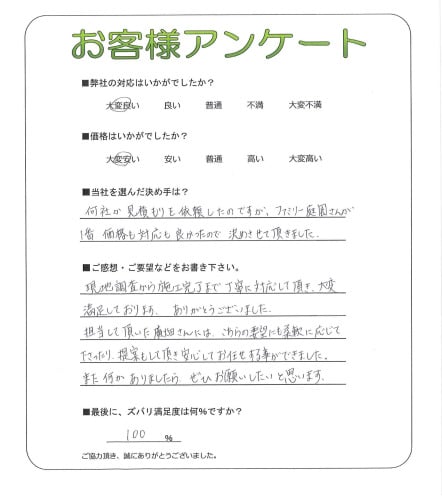 お客様アンケート
■弊社の対応はいかがでしたか？
大変良い 良い 普通 不満 大変不満
■価格はいかがでしたか？
大変安い 安い 普通 高い 大変高い
■当社を選んだ決め手は？
何社か見積もりを依頼したのですが、ファミリー庭園さんが
1番 価格も対応も良かったので 決めさせて頂きました。
■ご感想・ご要望などをお書き下さい。
現地調査から施工完了まで丁寧に対応して頂き、大変
満足しております。 ありがとうございました。
担当して頂いた廣畑さんには、こちらの要望にも柔軟に応じて
下さったり、提案もして頂き安心してお任せする事ができました。
また何かありましたら、ぜひお願いしたいと思います。
■最後に、ズバリ満足度は何%ですか？
100 %
ご協力頂き、誠にありがとうございました。